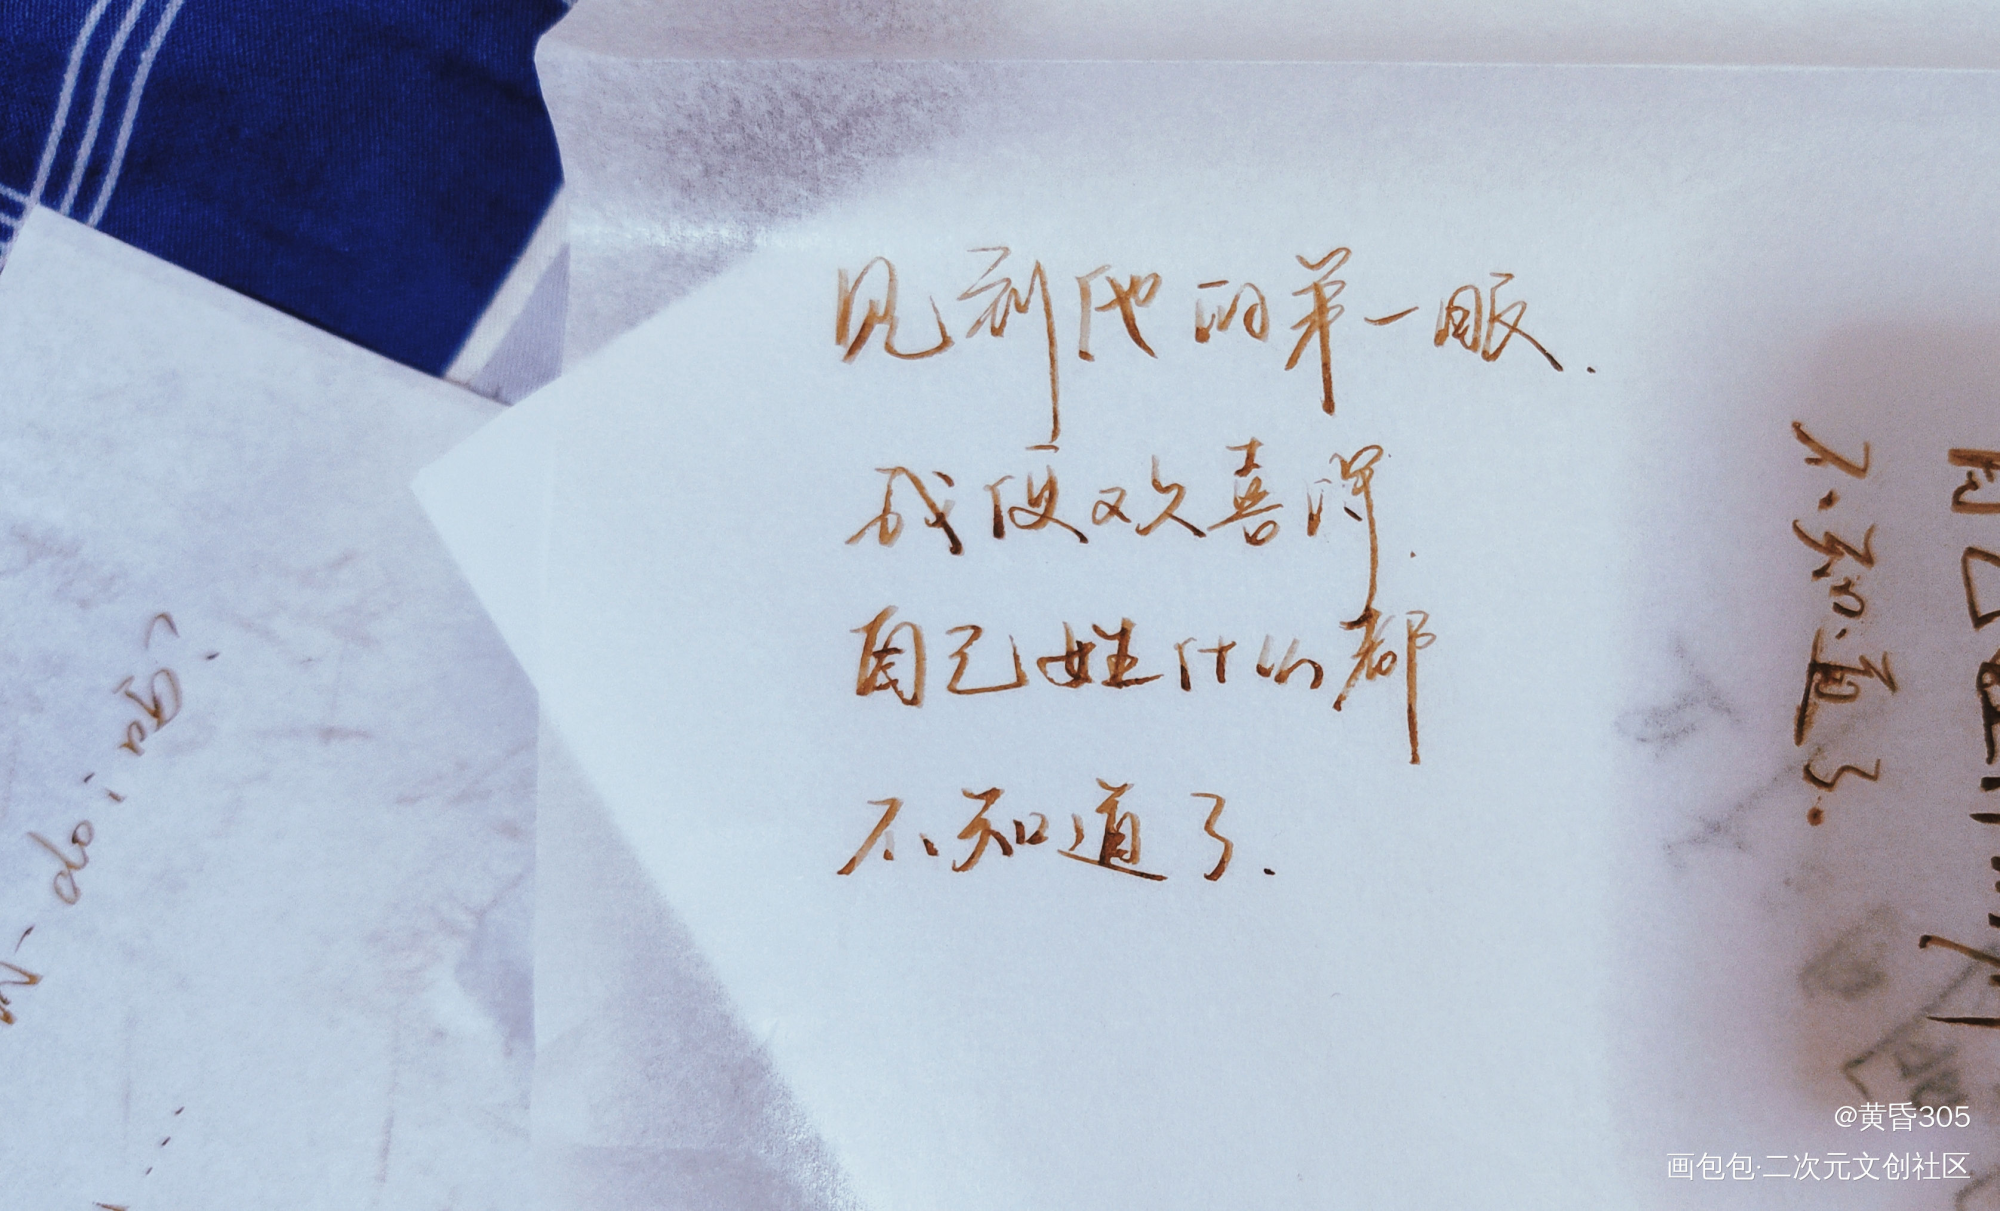 见到他的第一眼.
我便欢喜得.
自己姓什么都
不知道了.
不知道了.
@黄昏305
画包包·二次元文创社区